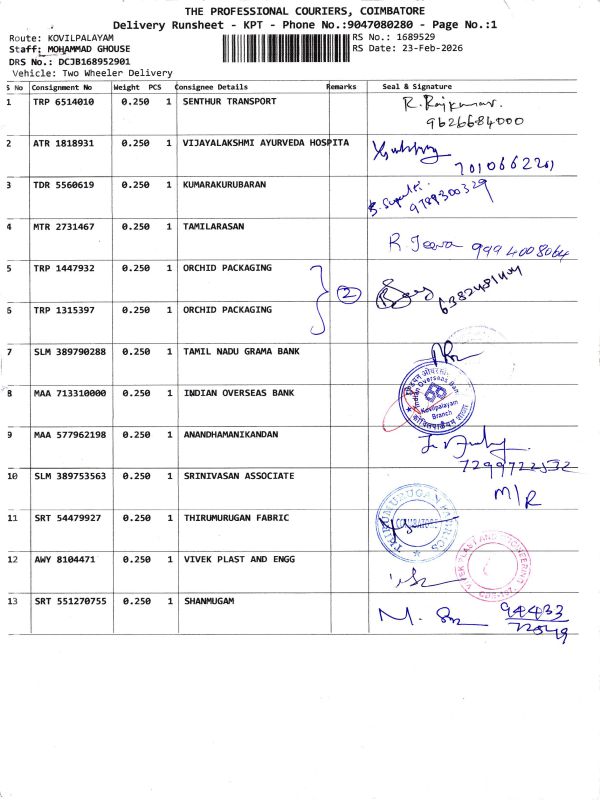 THE PROFESSIONAL COURIERS, COIMBATORE
Delivery Runsheet - KPT - Phone No.:9047080280 - Page No.:1
Route: KOVILPALAYAM
RS No.: 1689529
Staff: MOHAMMAD GHOUSE
RS Date: 23-Feb-2026
DRS No.: DCJB168952901
Vehicle: Two Wheeler Delivery
S No Consignment No Weight PCS Consignee Details Remarks Seal & Signature
1 TRP 6514010 0.250 1 SENTHUR TRANSPORT R. Rajkumar.
9626684000
2 ATR 1818931 0.250 1 VIJAYALAKSHMI AYURVEDA HOSPITA
7010662201
3 TDR 5560619 0.250 1 KUMARAKURUBARAN
9789300329
4 MTR 2731467 0.250 1 TAMILARASAN
R. Jeeva 9994008064
5 TRP 1447932 0.250 1 ORCHID PACKAGING
2
6 TRP 1315397 0.250 1 ORCHID PACKAGING
7 SLM 389790288 0.250 1 TAMIL NADU GRAMA BANK
8 MAA 713310000 0.250 1 INDIAN OVERSEAS BANK
Indian Overseas Bank
Kovilpalayam
Branch
9 MAA 577962198 0.250 1 ANANDHAMANIKANDAN
7299722532
10 SLM 389753563 0.250 1 SRINIVASAN ASSOCIATE
M/R
11 SRT 54479927 0.250 1 THIRUMURUGAN FABRIC
THIRUMURUGAN FABRICS
12 AWY 8104471 0.250 1 VIVEK PLAST AND ENGG
VIVEK PLAST AND ENGINEERING
13 SRT 551270755 0.250 1 SHANMUGAM
94433
72549